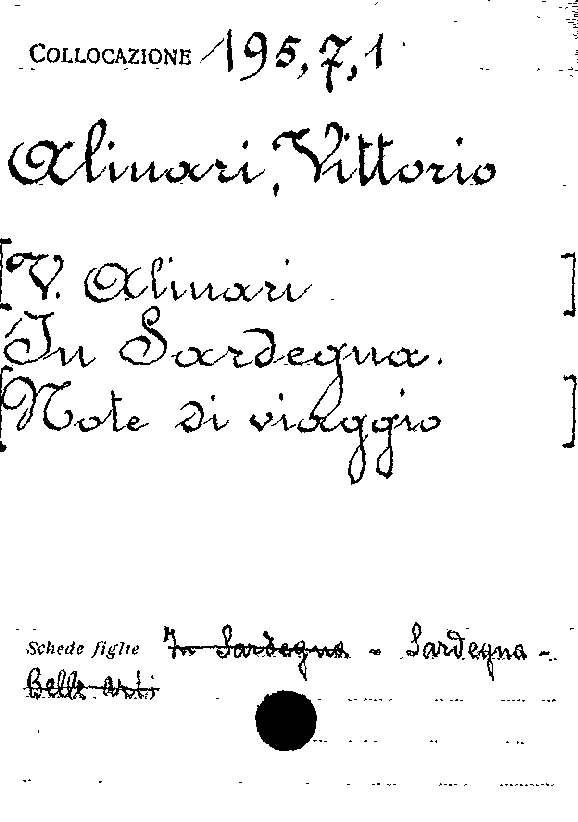 COLLOCAZIONE 195,7,1
Alinari, Vittorio
[V. Alinari ]
In Sardegna.
[Note di viaggio ]
Schede figlie In Sardegna - Sardegna -
Belle arti